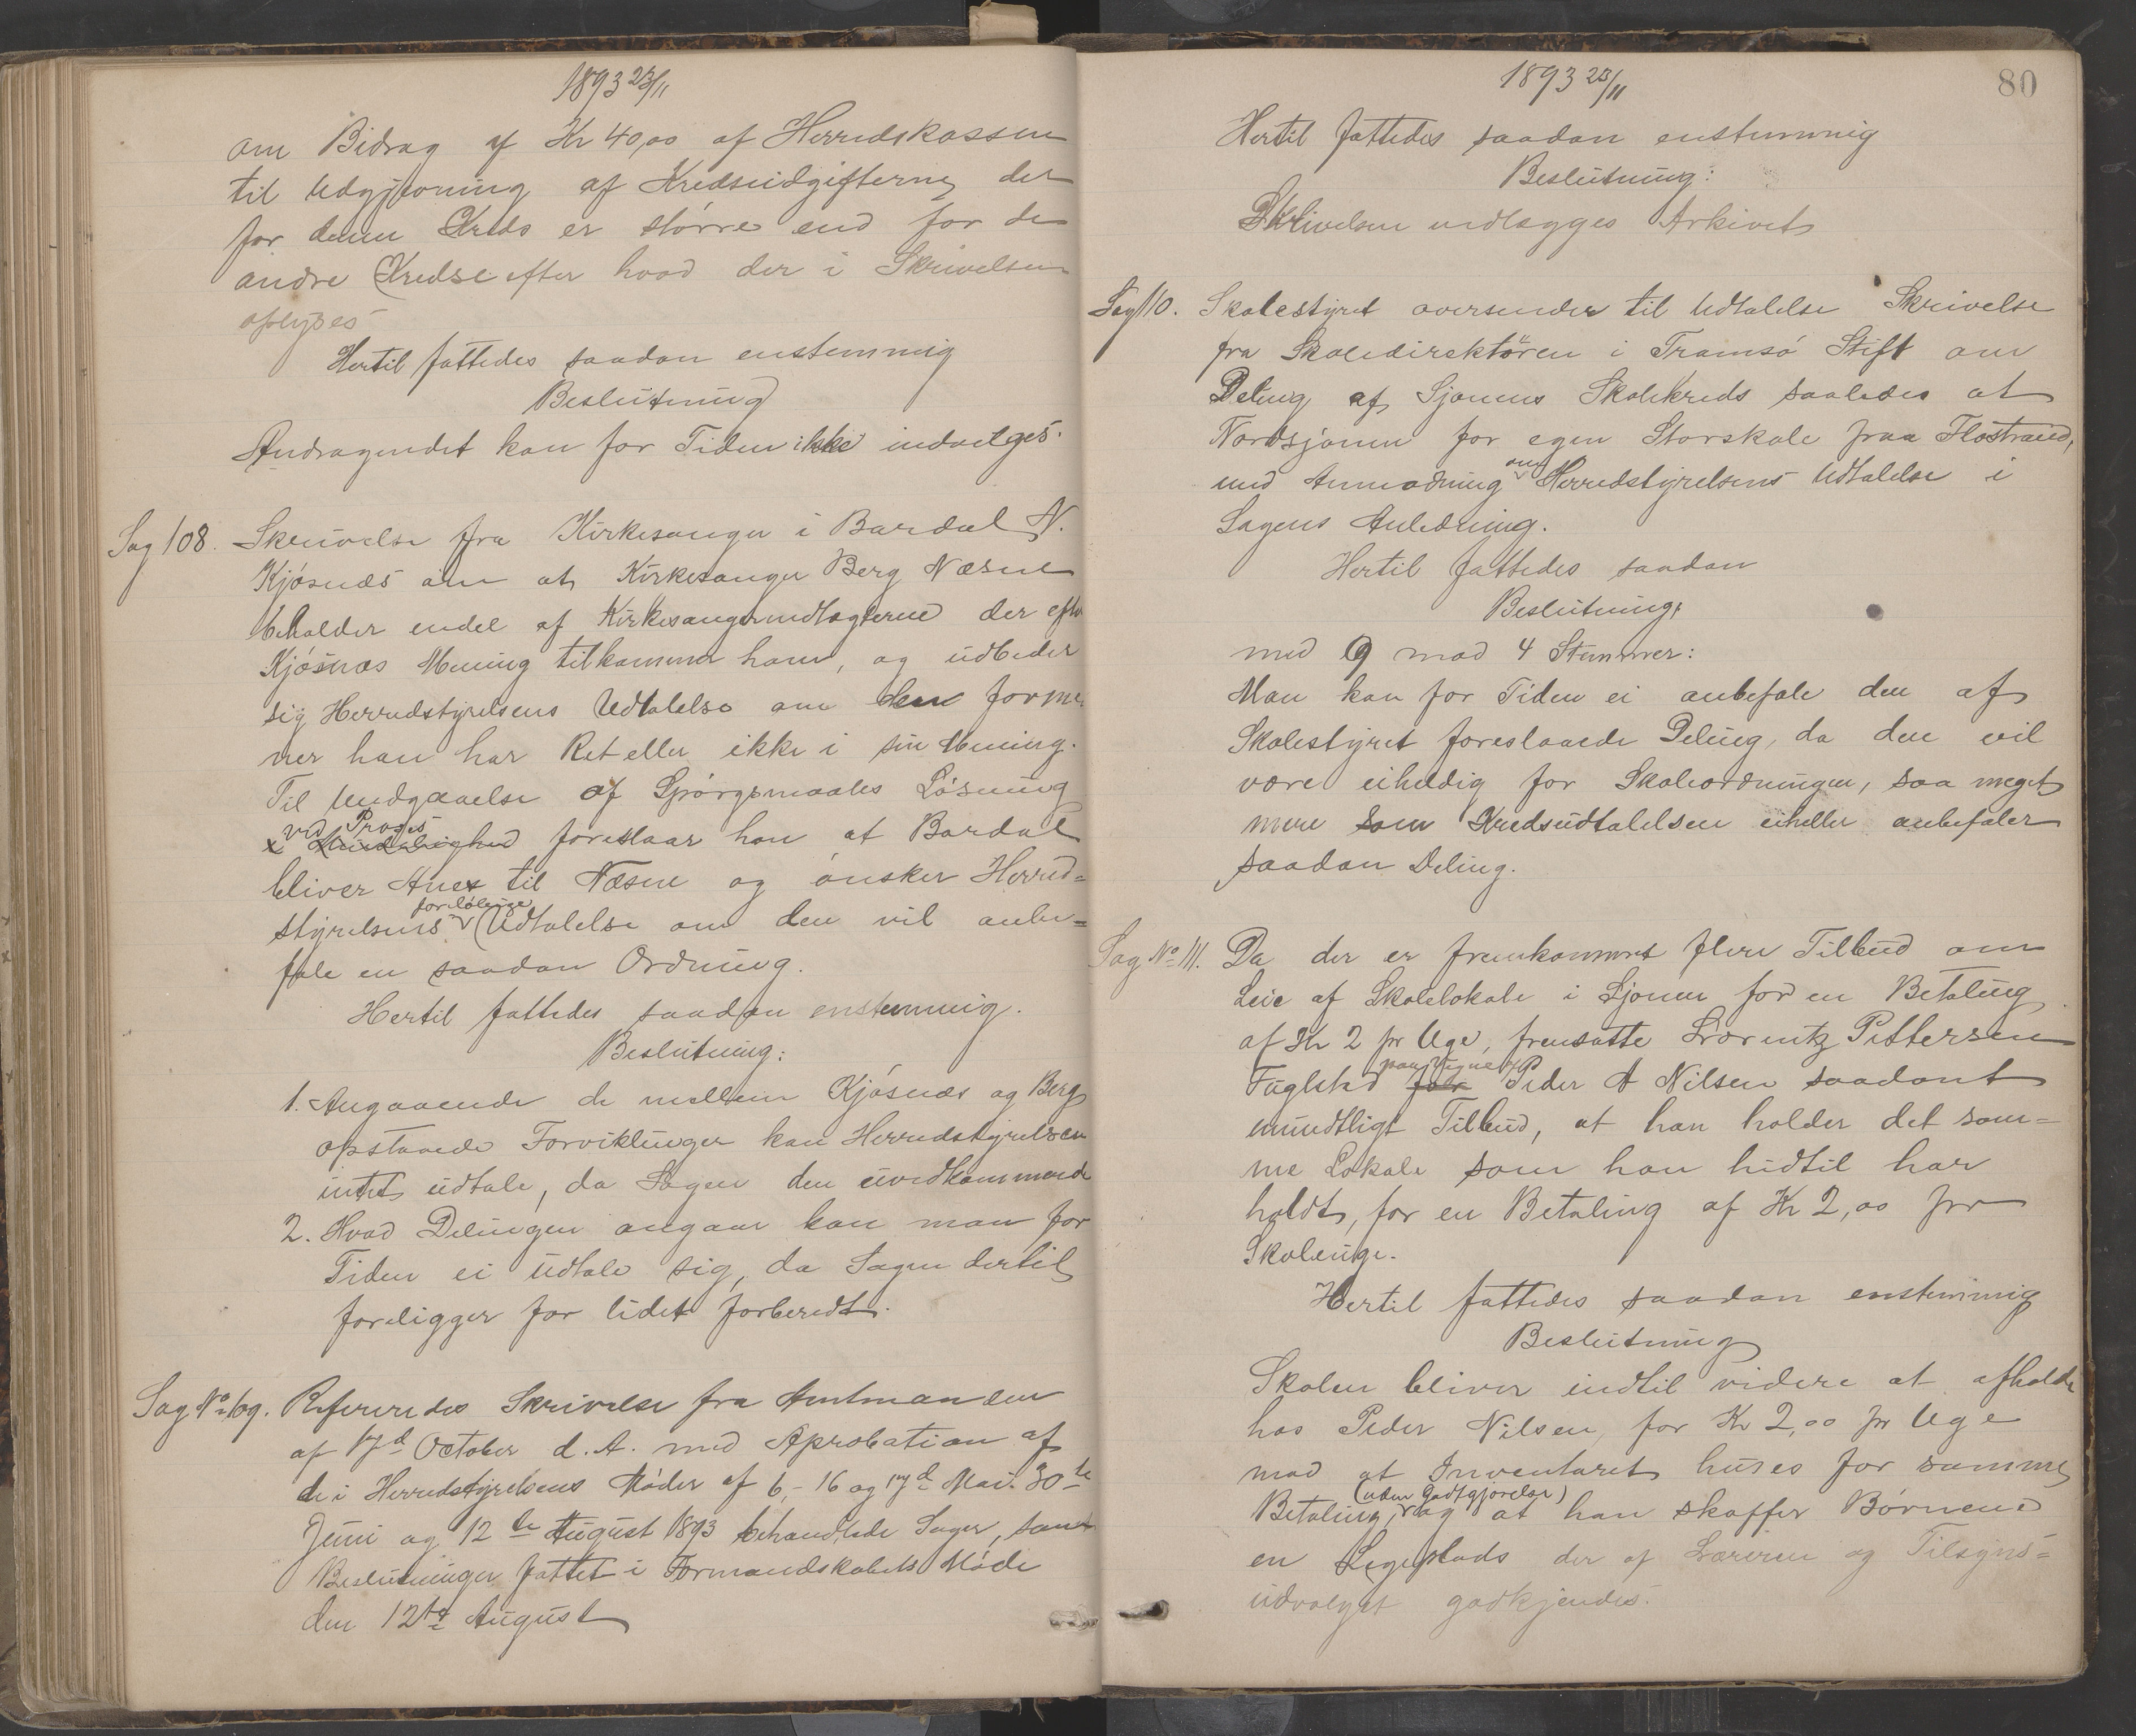 1893 23/11
om Bidrag af Kr 40,00 af Herredskassen
til Udgjevning af Kredsudgifterne, der
for denne Kreds er større end for de
andre Kredse efter hvad der i Skrivelsen
oplyses
Hertil fattedes saadan enstemmig
Beslutning
Andragendet kan for Tiden ikke indvilges.
Sag 108. Skrivelse fra Kirkesanger i Bardal N.
Kjøsnæs om at Kirkesanger Berg Næsne
beholder endel af Kirkesangerindtægterne der efter
Kjøsnæs Mening tilkommer ham, og udbeder
sig Herredstyrelsens Udtalelse om den forme
ner han har Ret eller ikke i sin Mening.
Til Undgaaelse af Spørgsmaales Løsning
ved Proges
foreslaar han at Bardal
bliver Anex til Næsne og ønsker Herred=
foreløbige
styrelsens Udtalelse om den vil anbe=
fale en saadan Ordning.
Hertil fattedes saadan enstemmig.
Beslutning:
1. Angaaende de mellem Kjøsnæs og Berg
opstaaede Forviklinger kan Herredstyrelsen
intet udtale, da Sagen den uvedkommende
2. Hvad Delingen angaar kan man for
Tiden ei udtale sig, da Sagen dertil
foreligger for lidet forberedt.
Sag No 109. Refereredes Skrivelse fra Amtmanden
af 17d October d. A. med Aprobation af
de i Herredstyrelsens Møder af 6,- 16 og 17d Mai. 30te
Juni og 12te August 1893 behandlede Sager, samt
Beslutninger fattet i Formandskabets Møde
den 12te August
1893 23/11
80
Hertil fattedes saadan enstemmig
Beslutning:
Skrivelsen vedlægges Arkivet
Sag 110. Skolestyret oversender til Udtalelse Skrivelse
fra Skoledirektøren i Tromsø Stift om
Deling af Sjonens Skolekreds saaledes at
Nordsjonen for egen Storskole paa Flostrand,
om
med Anmodning Herredstyrelsens Udtalelse i
Sagens Anledning.
Hertil fattedes saadan
Beslutning:
med 9 mod 4 Stemmer:
Man kan for Tiden ei anbefale den af
Skolestyret foreslaaede Deling, da den vil
være uheldig for Skoleordningen, saa meget
mere som Kredsudtalelsen eiheller anbefaler
saadan Deling.
Sag No 111. Da der er fremkommet flere Tilbud om
Leie af Skolelokale i Sjonen for en Betaling
af Kr 2 pr Uge, fremsatte Lorentz Pettersen
paa Vegne af
Fuglstad for Peder A Nilsen saadant
mundtligt Tilbud, at han holder det sam=
me Lokale som han hidtil har
holdt, for en Betaling af Kr 2,00 pr
Skoleuge.
Hertil fattedes saadan enstemmig
Beslutning
Skolen bliver indtil videre at afholde
hos Peder Nilsen, for Kr 2,00 pr Uge
mod at Inventaret huses for samme
(uden Godtgjørelse)
Betaling, og at han skaffer Børnene
en Legeplads der af Læreren og Tilsyns=
udvalget godkjendes.